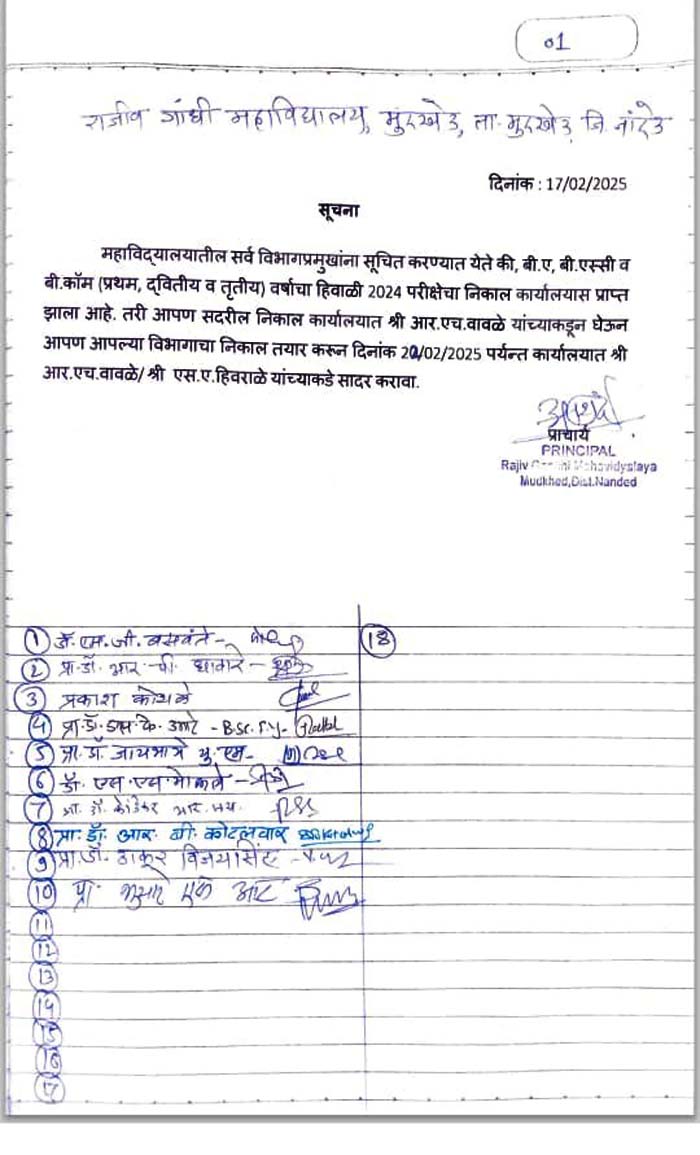 01
राजीव गांधी महाविद्यालय, मुदखेड, ता. मुदखेड, जि. नांदेड
दिनांक : 17/02/2025
सूचना
महाविद्यालयातील सर्व विभागप्रमुखांना सूचित करण्यात येते की, बी.ए, बी.एस्सी व
बी.कॉम (प्रथम, द्वितीय व तृतीय) वर्षाचा हिवाळी 2024 परीक्षेचा निकाल कार्यालयास प्राप्त
झाला आहे. तरी आपण सदरील निकाल कार्यालयात श्री आर.एच.वावळे यांच्याकडून घेऊन
आपण आपल्या विभागाचा निकाल तयार करून दिनांक 20/02/2025 पर्यन्त कार्यालयात श्री
आर.एच.वावळे/ श्री एस.ए.हिवराळे यांच्याकडे सादर करावा.
प्राचार्य
PRINCIPAL
Rajiv Gandhi Mahavidyalaya
Mudkhed,Dist.Nanded
1 डॉ. एम. जी. बसवंते -
18
2 प्रा. डॉ. आर. पी.
3 प्रकाश
4 प्रा. डॉ. एस. के. - B.Sc. T.Y.-
5 प्रा. डॉ. जायभाये यु. एम.-
6 डॉ. एस. एच. -
7 प्रा. डॉ.
8 प्रा. डॉ. आर. बी. कोटलवार
9 प्रा. डॉ. ठाकूर विजयसिंह -
10 प्रा. भुसारे एफ आर
11
12
13
14
15
16
17